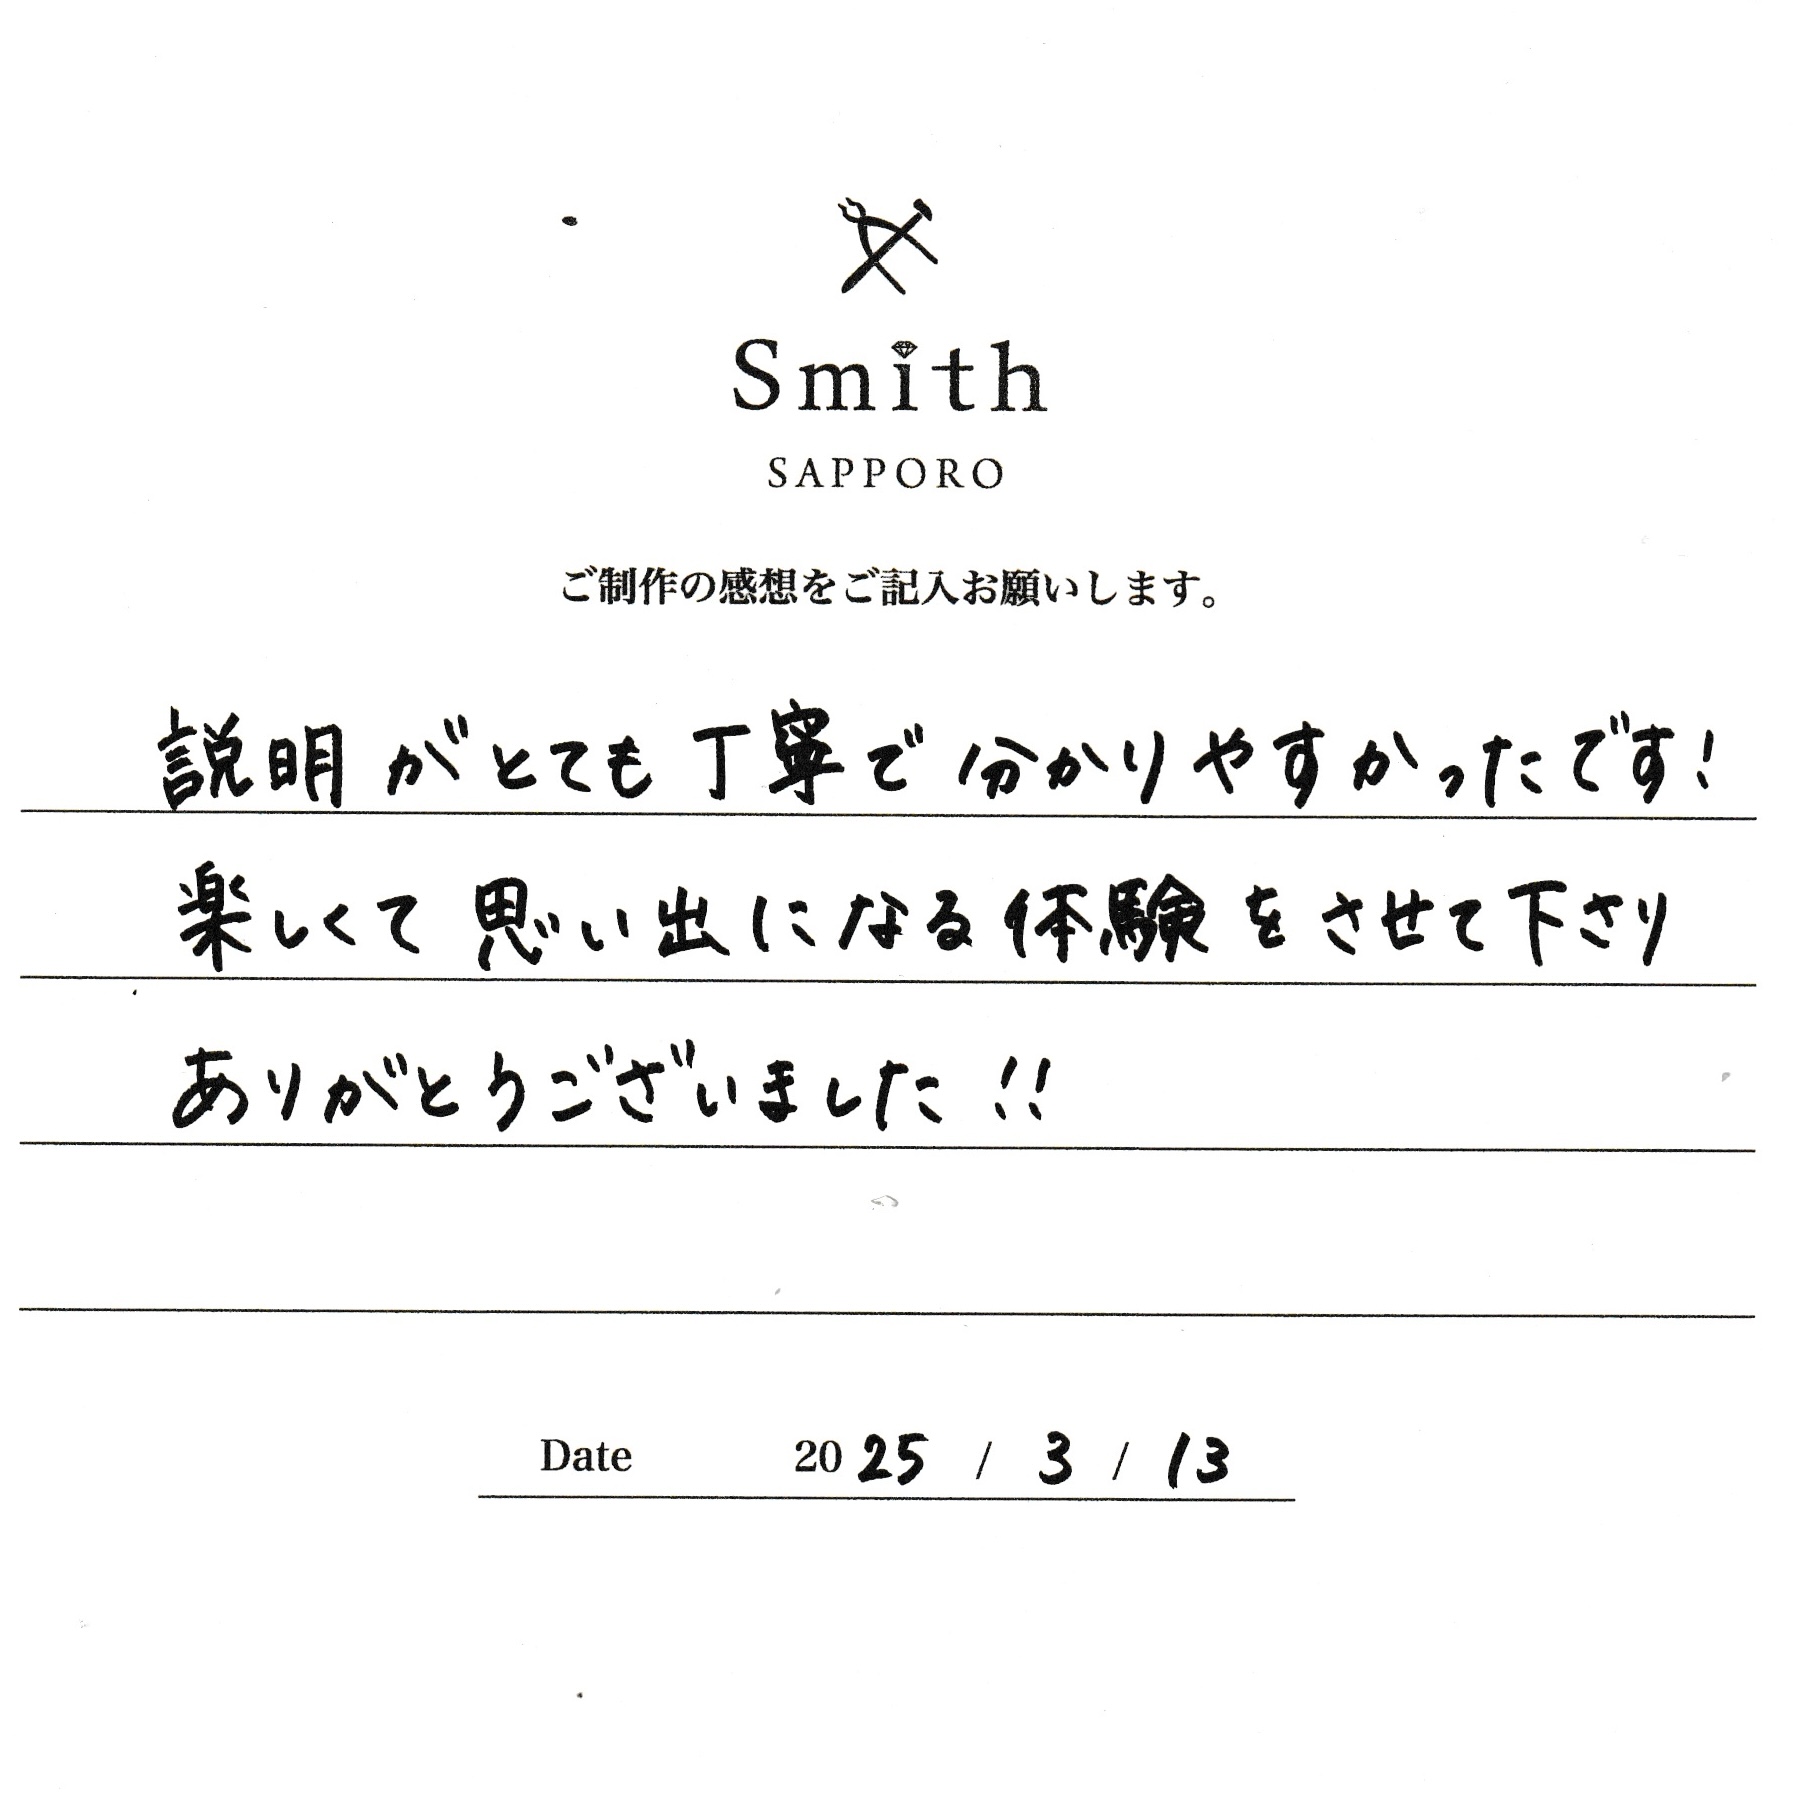 Smith
SAPPORO
ご制作の感想をご記入お願いします。
説明がとても丁寧で分かりやすかったです!
楽しくて思い出になる体験をさせて下さり
ありがとうございました!!
Date 2025 / 3 / 13